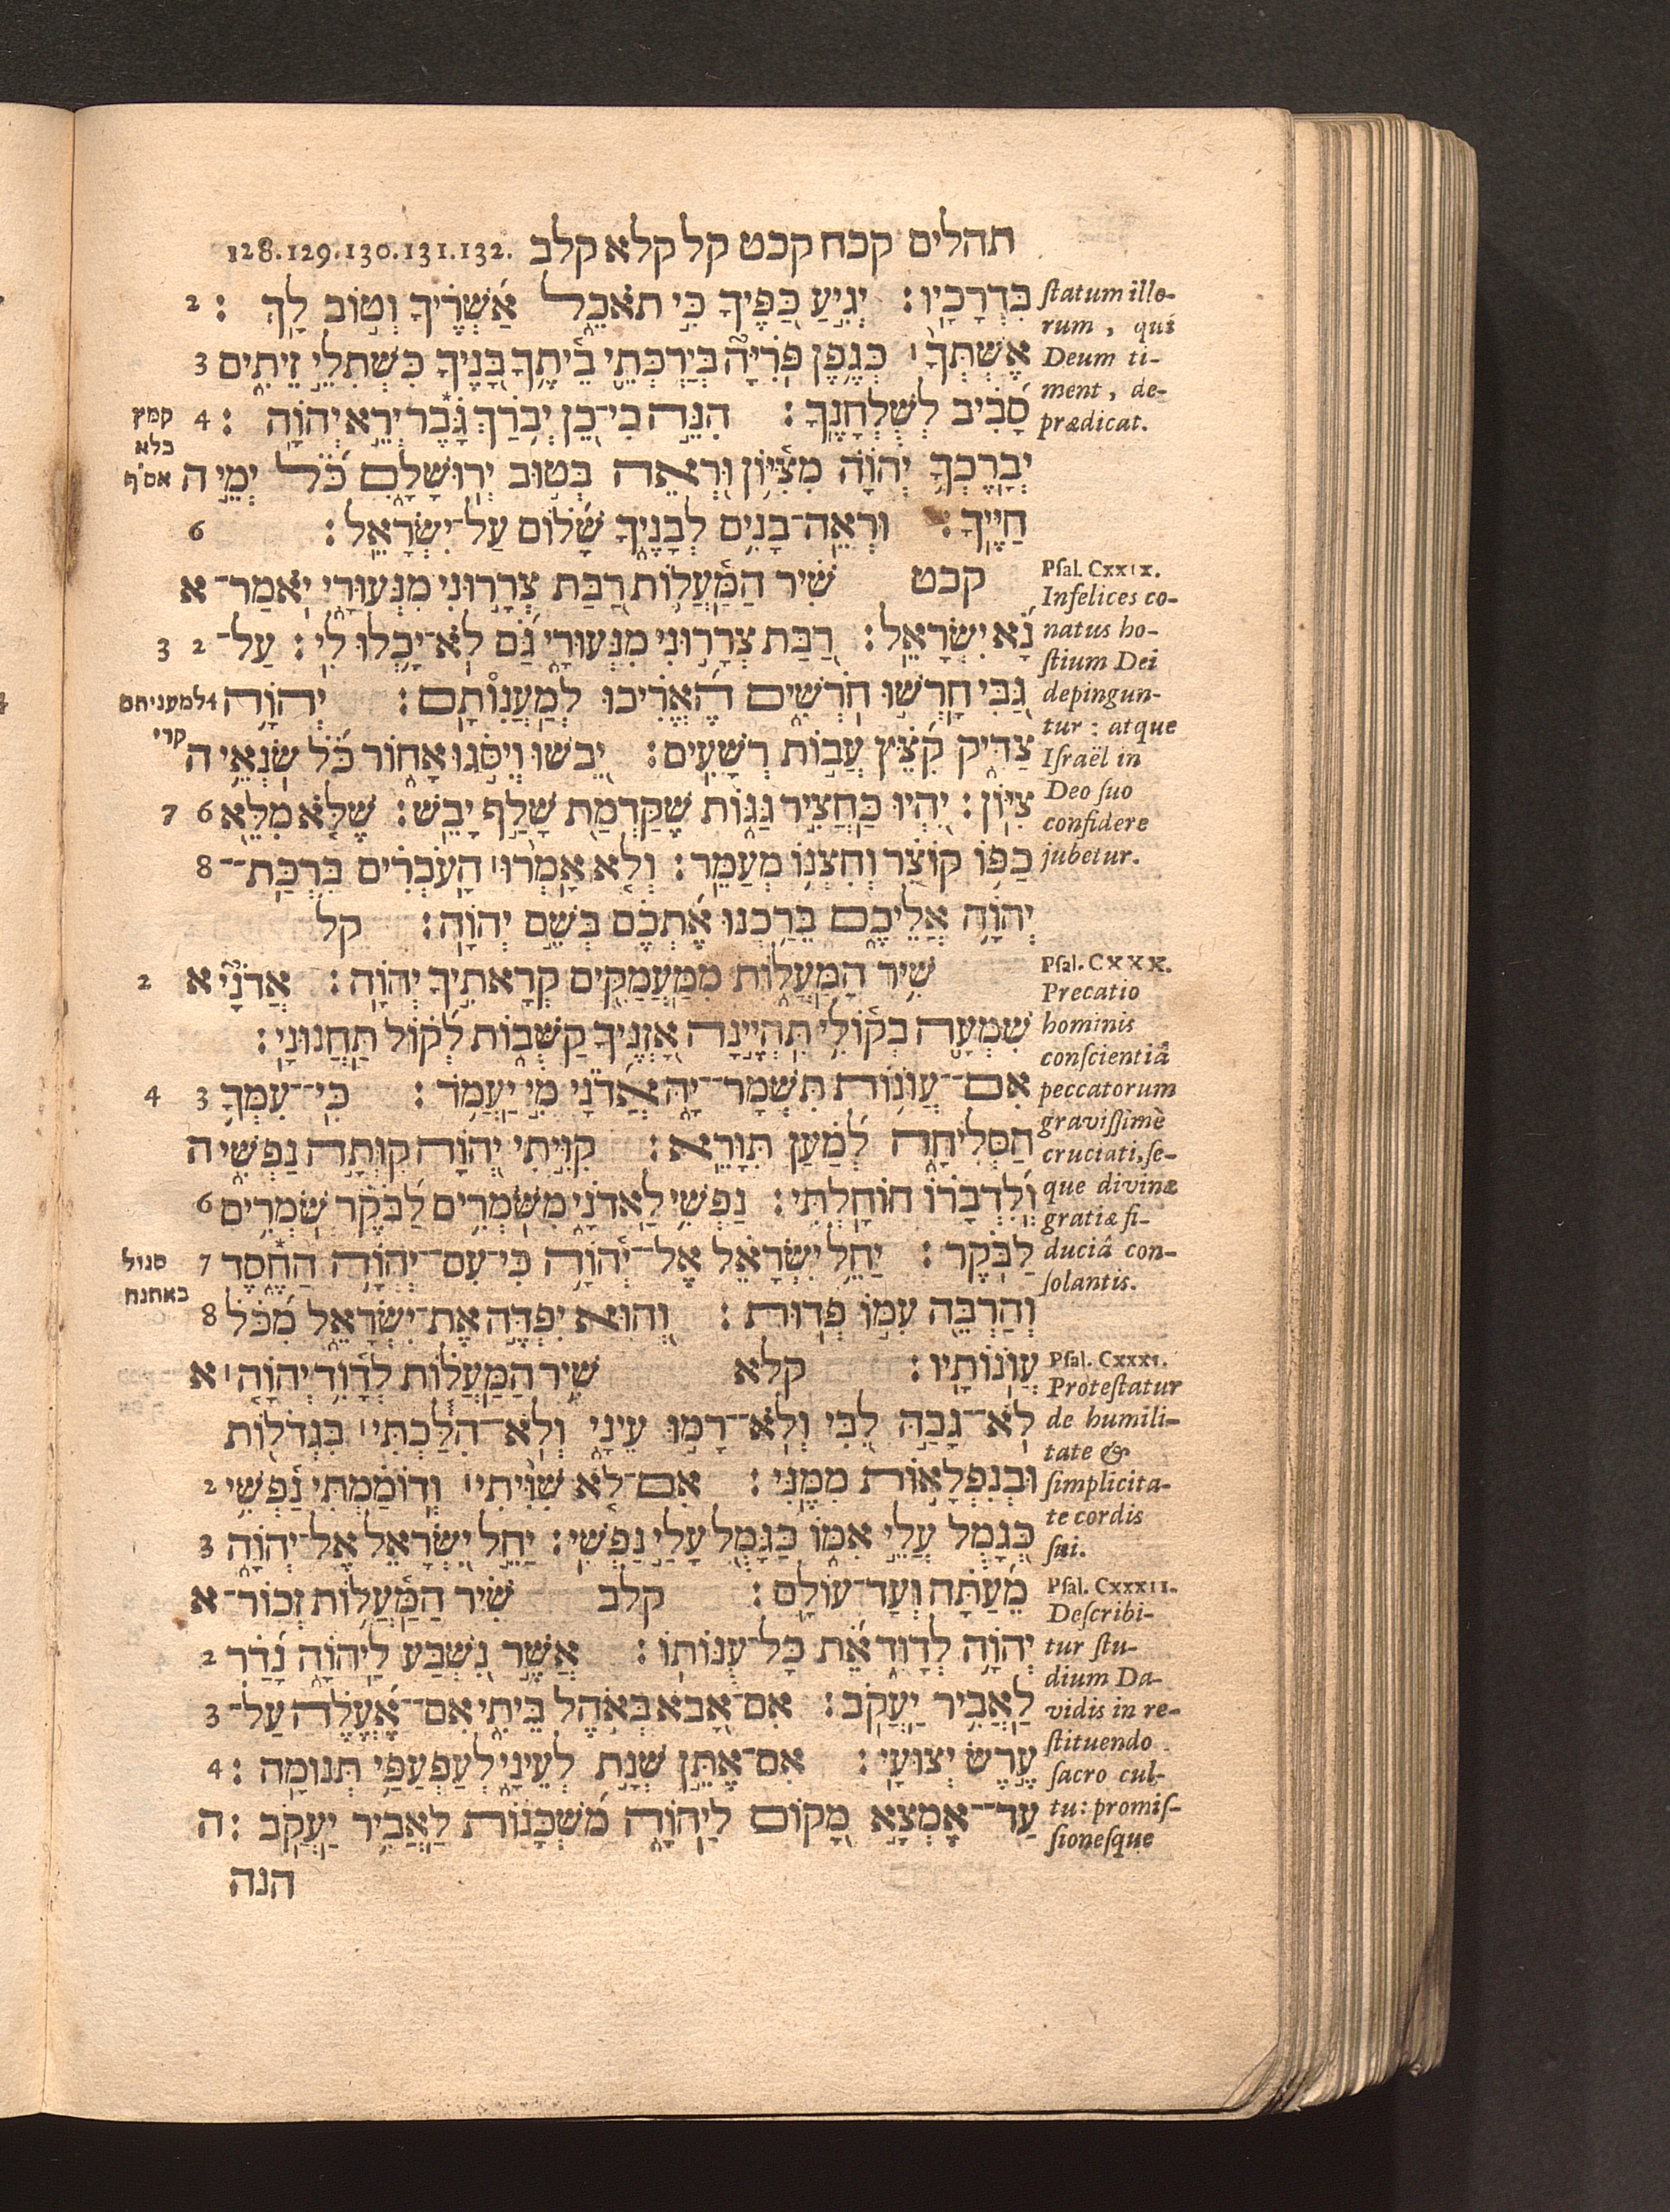 תהלים קכח קכט קל קלא קלב 128.129.130.131.132.
בִּדְרָכָיו׃ יְגִיעַ כַּפֶּיךָ כִּי תֹאכֵל אַשְׁרֶיךָ וְטוֹב לָךְ׃ 2
אֶשְׁתְּךָ׀ כְּגֶפֶן פֹּרִיָּה בְּיַרְכְּתֵי בֵיתֶךָ בָּנֶיךָ כִּשְׁתִלֵי זֵיתִים 3
סָבִיב לְשֻׁלְחָנֶךָ׃ הִנֵּה כִי־כֵן יְבֹרַךְ גָּבֶר יְרֵא יְהוָה׃ 4
יְבָרֶכְךָ יְהוָה מִצִּיּוֹן וּרְאֵה בְּטוּב יְרוּשָׁלָםִ כֹּל יְמֵי ה
חַיֶּיךָ׃ וּרְאֵה־בָנִים לְבָנֶיךָ שָׁלוֹם עַל־יִשְׂרָאֵל׃ 6
קכט שִׁיר הַמַּעֲלוֹת רַבַּת צְרָרוּנִי מִנְּעוּרָי יֹאמַר־ א
נָא יִשְׂרָאֵל׃ רַבַּת צְרָרוּנִי מִנְּעוּרָי גַּם לֹא־יָכְלוּ לִי׃ עַל־ 2 3
גַּבִּי חָרְשׁוּ חֹרְשִׁים הֶאֱרִיכוּ לְמַעֲנוֹתָם׃ יְהוָה 4
צַדִּיק קִצֵּץ עֲבוֹת רְשָׁעִים׃ יֵבֹשׁוּ וְיִסֹּגוּ אָחוֹר כֹּל שֹׂנְאֵי ה
צִיּוֹן׃ יִהְיוּ כַּחֲצִיר גַּגּוֹת שֶׁקַּדְמַת שָׁלַף יָבֵשׁ׃ שֶׁלֹּא מִלֵּא 6 7
כַפּוֹ קוֹצֵר וְחִצְנוֹ מְעַמֵּר׃ וְלֹא אָמְרוּ׀ הָעֹבְרִים בִּרְכַּת־ 8
יְהוָה אֲלֵיכֶם בֵּרַכְנוּ אֶתְכֶם בְּשֵׁם יְהוָה׃ קל
שִׁיר הַמַּעֲלוֹת מִמַּעֲמַקִּים קְרָאתִיךָ יְהוָה׃ אֲדֹנָי א 2
שִׁמְעָה בְקוֹלִי תִּהְיֶינָה אָזְנֶיךָ קַשֻּׁבוֹת לְקוֹל תַּחֲנוּנָי׃
אִם־עֲוֹנוֹת תִּשְׁמָר־יָהּ אֲדֹנָי מִי יַעֲמֹד׃ כִּי־עִמְּךָ 3 4
הַסְּלִיחָה לְמַעַן תִּוָּרֵא׃ קִוִּיתִי יְהוָה קִוְּתָה נַפְשִׁי ה
וְלִדְבָרוֹ הוֹחָלְתִּי׃ נַפְשִׁי לַאדֹנָי מִשֹּׁמְרִים לַבֹּקֶר שֹׁמְרִים 6
לַבֹּקֶר׃ יַחֵל יִשְׂרָאֵל אֶל־יְהוָה כִּי־עִם־יְהוָה הַחֶסֶד 7
וְהַרְבֵּה עִמּוֹ פְדוּת׃ וְהוּא יִפְדֶּה אֶת־יִשְׂרָאֵל מִכֹּל 8
עֲוֹנוֹתָיו׃ קלא שִׁיר הַמַּעֲלוֹת לְדָוִד יְהוָה׀ א
לֹא־גָבַהּ לִבִּי וְלֹא־רָמוּ עֵינָי וְלֹא־הִלַּכְתִּי׀ בִּגְדֹלוֹת
וּבְנִפְלָאוֹת מִמֶּנִּי׃ אִם־לֹא שִׁוִּיתִי׀ וְדוֹמַמְתִּי נַפְשִׁי 2
כְּגָמֻל עֲלֵי אִמּוֹ כַּגָּמֻל עָלַי נַפְשִׁי׃ יַחֵל יִשְׂרָאֵל אֶל־יְהוָה 3
מֵעַתָּה וְעַד־עוֹלָם׃ קלב שִׁיר הַמַּעֲלוֹת זְכוֹר־ א
יְהוָה לְדָוִד אֵת כָּל־עֻנּוֹתוֹ׃ אֲשֶׁר נִשְׁבַּע לַיהוָה נָדַר 2
לַאֲבִיר יַעֲקֹב׃ אִם־אָבֹא בְּאֹהֶל בֵּיתִי אִם־אֶעֱלֶה עַל־ 3
עֶרֶשׂ יְצוּעָי׃ אִם־אֶתֵּן שְׁנַת לְעֵינָי לְעַפְעַפַּי תְּנוּמָה׃ 4
עַד־אֶמְצָא מָקוֹם לַיהוָה מִשְׁכָּנוֹת לַאֲבִיר יַעֲקֹב׃ ה
הנה
ſtatum illo-
rum, qui
Deum ti-
ment, de-
prædicat.
Pſal. CXXIX.
Infelices co-
natus ho-
ſtium Dei
depingun-
tur: atque
Iſraël in
Deo ſuo
confidere
jubetur.
Pſal. CXXX.
Precatio
hominis
conſcientiâ
peccatorum
graviſſimè
cruciati, ſe-
que divinæ
gratiæ fi-
duciâ con-
ſolantis.
Pſal. CXXXI.
Proteſtatur
de humili-
tate &
ſimplicita-
te cordis
ſui.
Pſal. CXXXII.
Deſcribi-
tur ſtu-
dium Da-
vidis in re-
ſtituendo
ſacro cul-
tu: promiſ-
ſioneſque
קמץ
בלא
אס״ף
למעניתם
קרי
סגול
באתנח